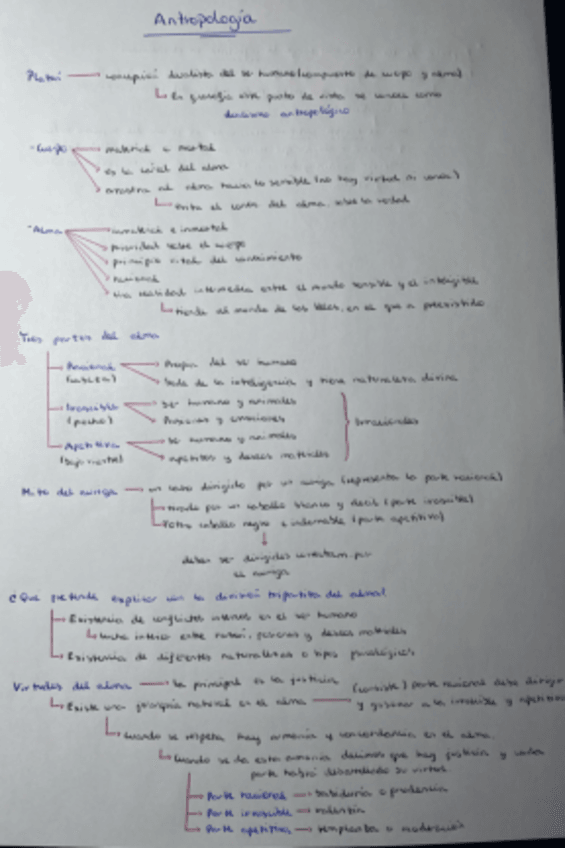 Antropología
Platón → concepción dualista del ser humano (compuesto de cuerpo y alma)
En filosofía este punto de vista se conoce como
dualismo antropológico
- Cuerpo → material e mortal
es la cárcel del alma
arrastra al alma hacia lo sensible (no hay virtud ni
evita el del alma, sobre la verdad
- Alma → inmaterial e inmortal
prioridad sobre el cuerpo
principio vital del conocimiento
racional
una realidad intermedia entre el mundo sensible y el inteligible
tiende al mundo de las Ideas, en el que a preexistido
Tres partes del alma
Racional → Propia del ser humano
(cabeza) → Sede de la inteligencia y tiene naturaleza divina
Irascible → ser humano y animales
(pecho) → Pasiones y emociones
Irracionales
Apetitiva → ser humano y animales
(bajo vientre) → apetitos y deseos materiales
Mito del auriga → un carro dirigido por un auriga (representa la parte racional)
tirado por un caballo blanco y dócil (parte irascible)
y otro caballo negro e indomable (parte apetitiva)
deben ser dirigidos correctam. por
el auriga
¿Que pretende explicar con la división tripartita del alma?
Existencia de conflictos internos en el ser humano
lucha interna entre razón, pasiones y deseos materiales
Existencia de diferentes naturalezas o tipos psicológicos
Virtudes del alma → la principal es la justicia (consiste) parte racional debe dirigir
Existe una jerarquía natural en el alma y gobernar a la irascible y apetitiva
Cuando se respeta hay armonía y concordancia en el alma.
Cuando se da esta armonía decimos que hay justicia y cada
parte habrá desarrollado su virtud.
Parte racional → sabiduría o prudencia
Parte irascible → valentía
Parte apetitiva → templanza o moderación